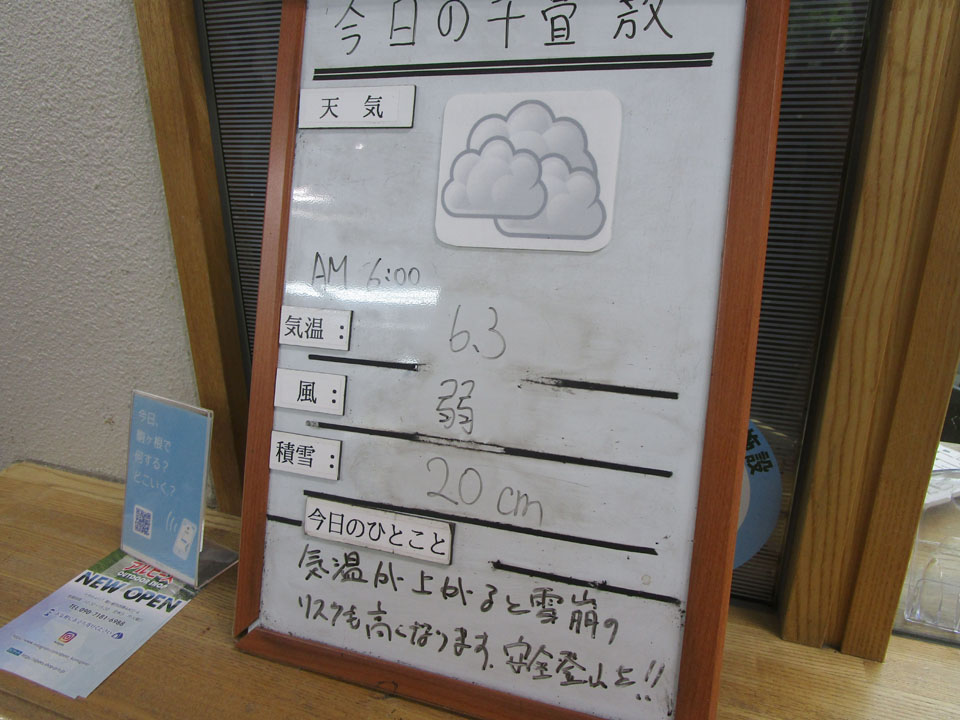 今日の千畳敷
天気
AM 6:00
気温： 6.3
風： 弱
積雪： 20 cm
今日のひとこと
気温が上がると雪崩の
リスクも高くなります。安全登山を!!
今日、
駒ヶ根で
何する？
どこいく？
アルピーヌ
OUTDOOR
NEW OPEN
施設